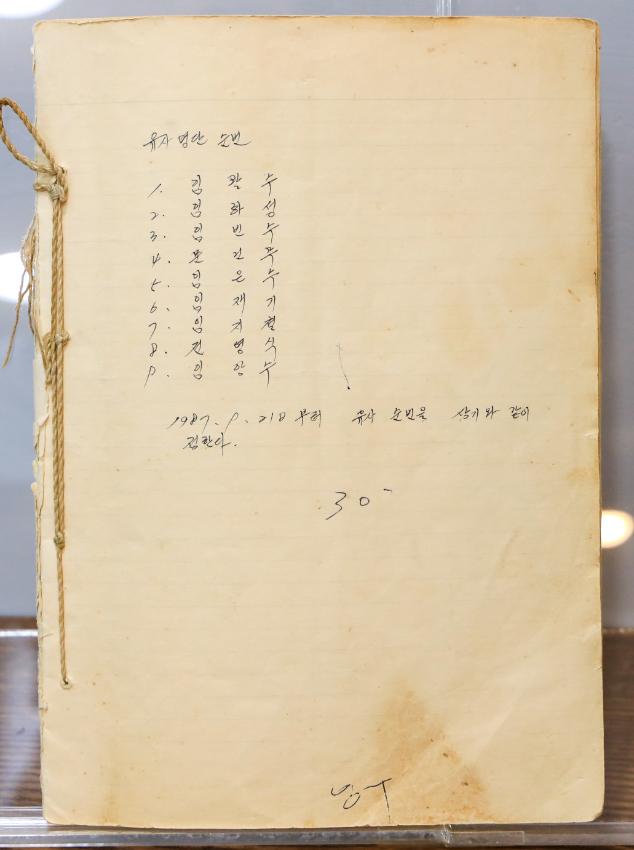 유사 명단 순번
1. 임 광 수
2. 임 화 성
3. 임 빈 수
4. 문 건 주
5. 임 은 수
6. 임 재 기
7. 임 지 철
8. 전 병 식
9. 임 양 수
1987. 9. 21일 부터 유사 순번을 상기와 같이
정한다.
30